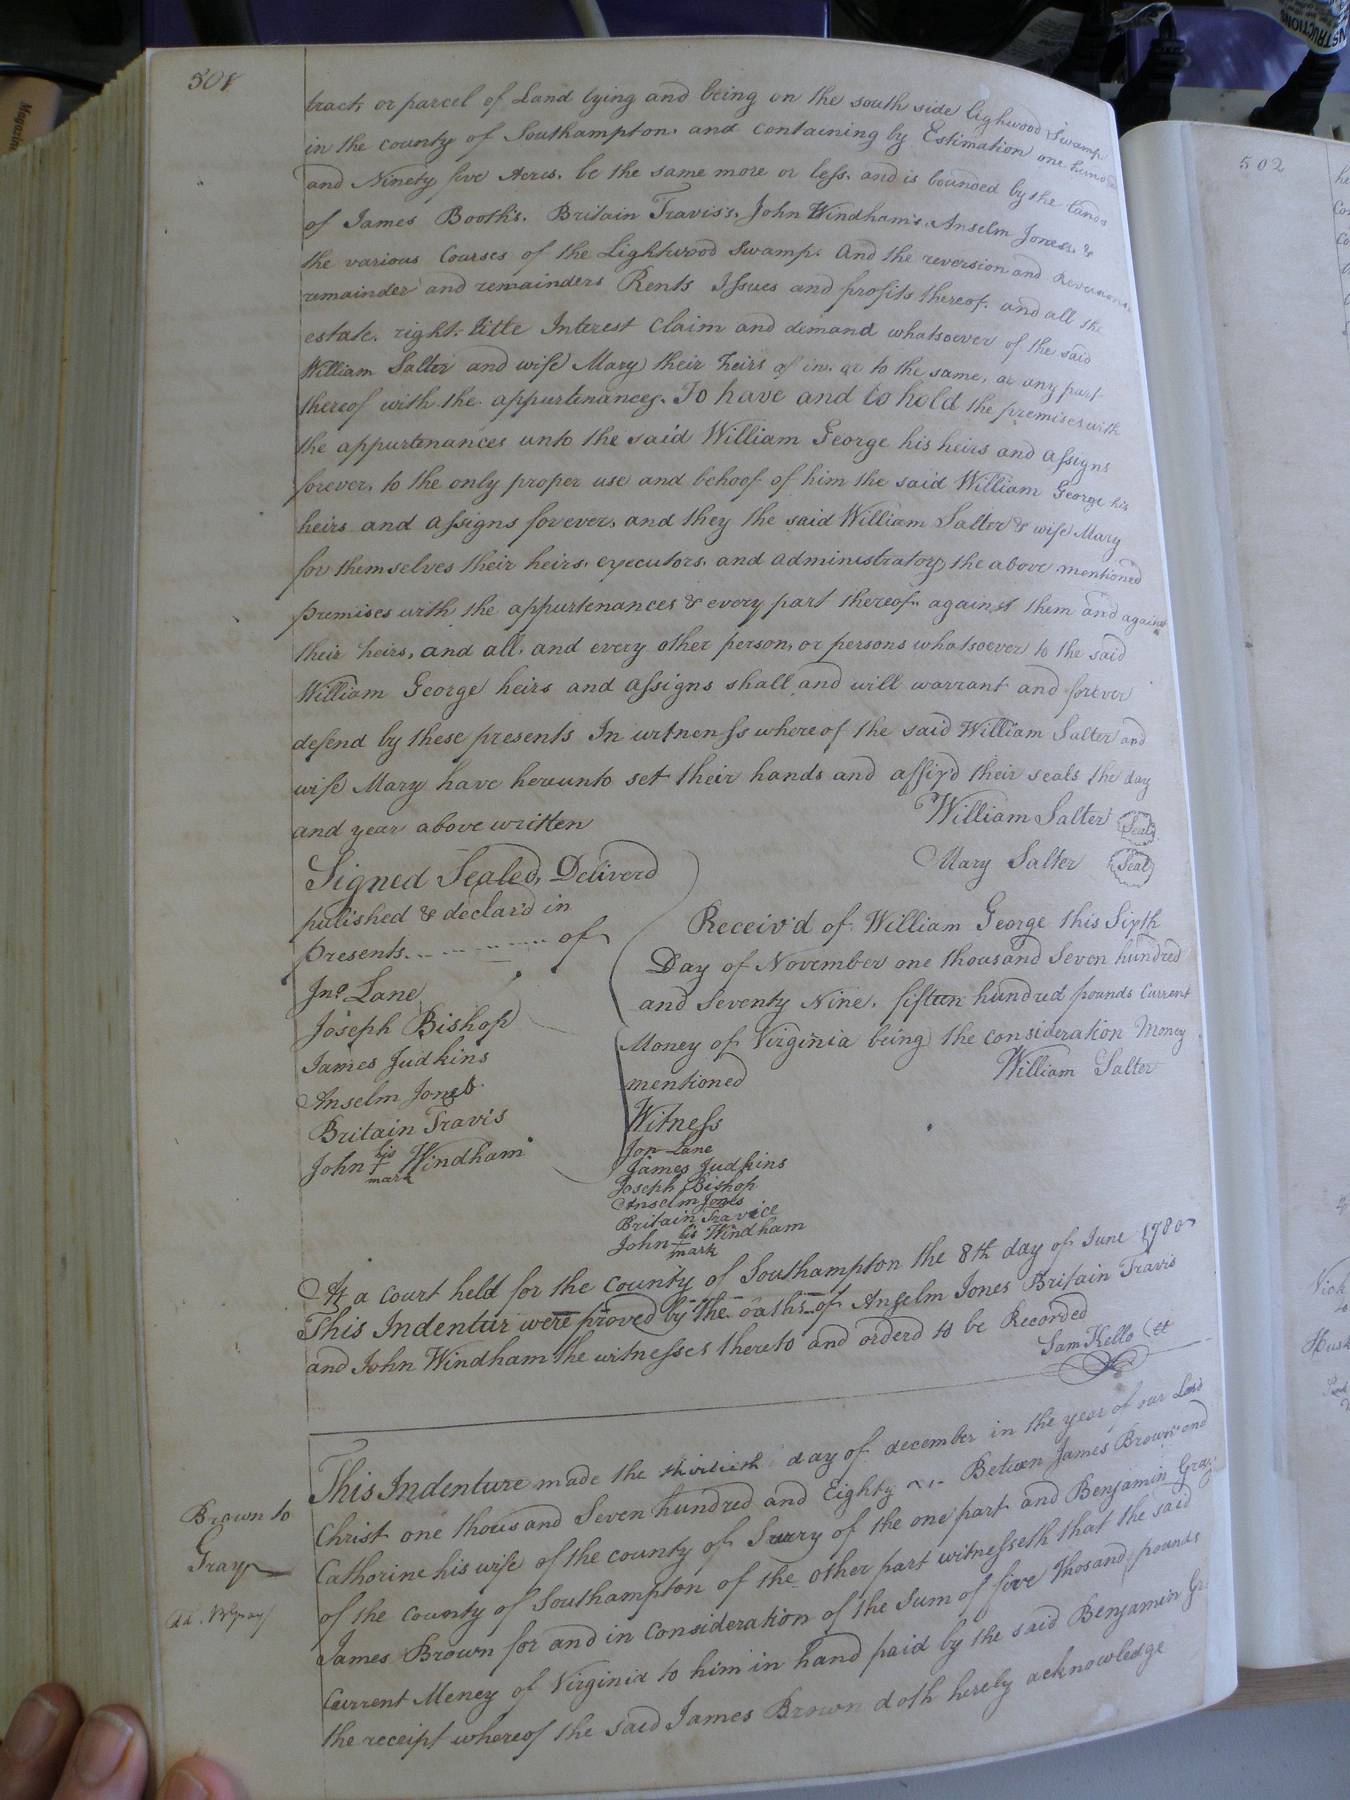 501
tract or parcel of Land lying and being on the south side Lighwood Swamp
in the county of Southampton. and containing by Estimation one hund
and Ninety five Acres. be the same more or less. and is bounded by the Lands
of James Booth's. Britain Travis's. John Windham's. Anselm Jones. &
the various Courses of the Lightwood Swamp. And the reversion and Reversions
remainder and remainders Rents Issues and profits thereof. and all the
estate. right. title Interest claim and demand whatsoever of the said
William Salter and wife Mary their heirs of in. or to the same, or any part
thereof with the appurtenances. To have and to hold the premises with
the appurtenances unto the said William George his heirs and assigns
forever. to the only proper use and behoof of him the said William George his
heirs and assigns forever, and they the said William Salter & wife Mary
for themselves their heirs, executors, and administrators the above mentioned
premises with the appurtenances & every part thereof. against them and against
their heirs, and all, and every other person, or persons whatsoever to the said
William George heirs and assigns shall and will warrant and forever
defend by these presents In witnenss whereof the said William Salter and
wife Mary have hereunto set their hands and affix'd their seals the day
and year above written
William Salter Seal
Mary Salter Seal
Signed Sealed, Deliverd
pulished & declar'd in
presents. of
Jno. Lane
Joseph Bishop
James Judkins
Anselm Jones
Britain Travis
John his Windham
mark
Receiv'd of William George this Sixth
Day of November one thousand Seven hundred
and Seventy Nine. fifteen hundred pounds Current
Money of Virginia being the consideration Money
mentioned
William Salter
Witness
Jon Lane
James Judkins
Joseph Bishop
Anselm Jones
Britain Travice
John his Windham
mark
At a court held for the county of Southampton the 8th day of June 1780
This Indentur were proved by the oaths of Anselm Jones Britain Travis
and John Windham the witnesses thereto and orderd to be Recorded
Sam Kello Ct
Brown to
Gray
This Indenture made the thirtieth day of december in the year of our Lord
Christ one thousand Seven hundred and Eighty Betwen James Brown and
Catherine his wife of the county of Surry of the one part and Benjamin Gray
of the County of Southampton of the other part witnesseth that the said
James Brown for and in Consideration of the Sum of five Thosand pounds
Current Money of Virginia to him in hand paid by the said Benjamin Gr
the receipt whereof the said James Brown doth hereby acknowledge
502
Magazine